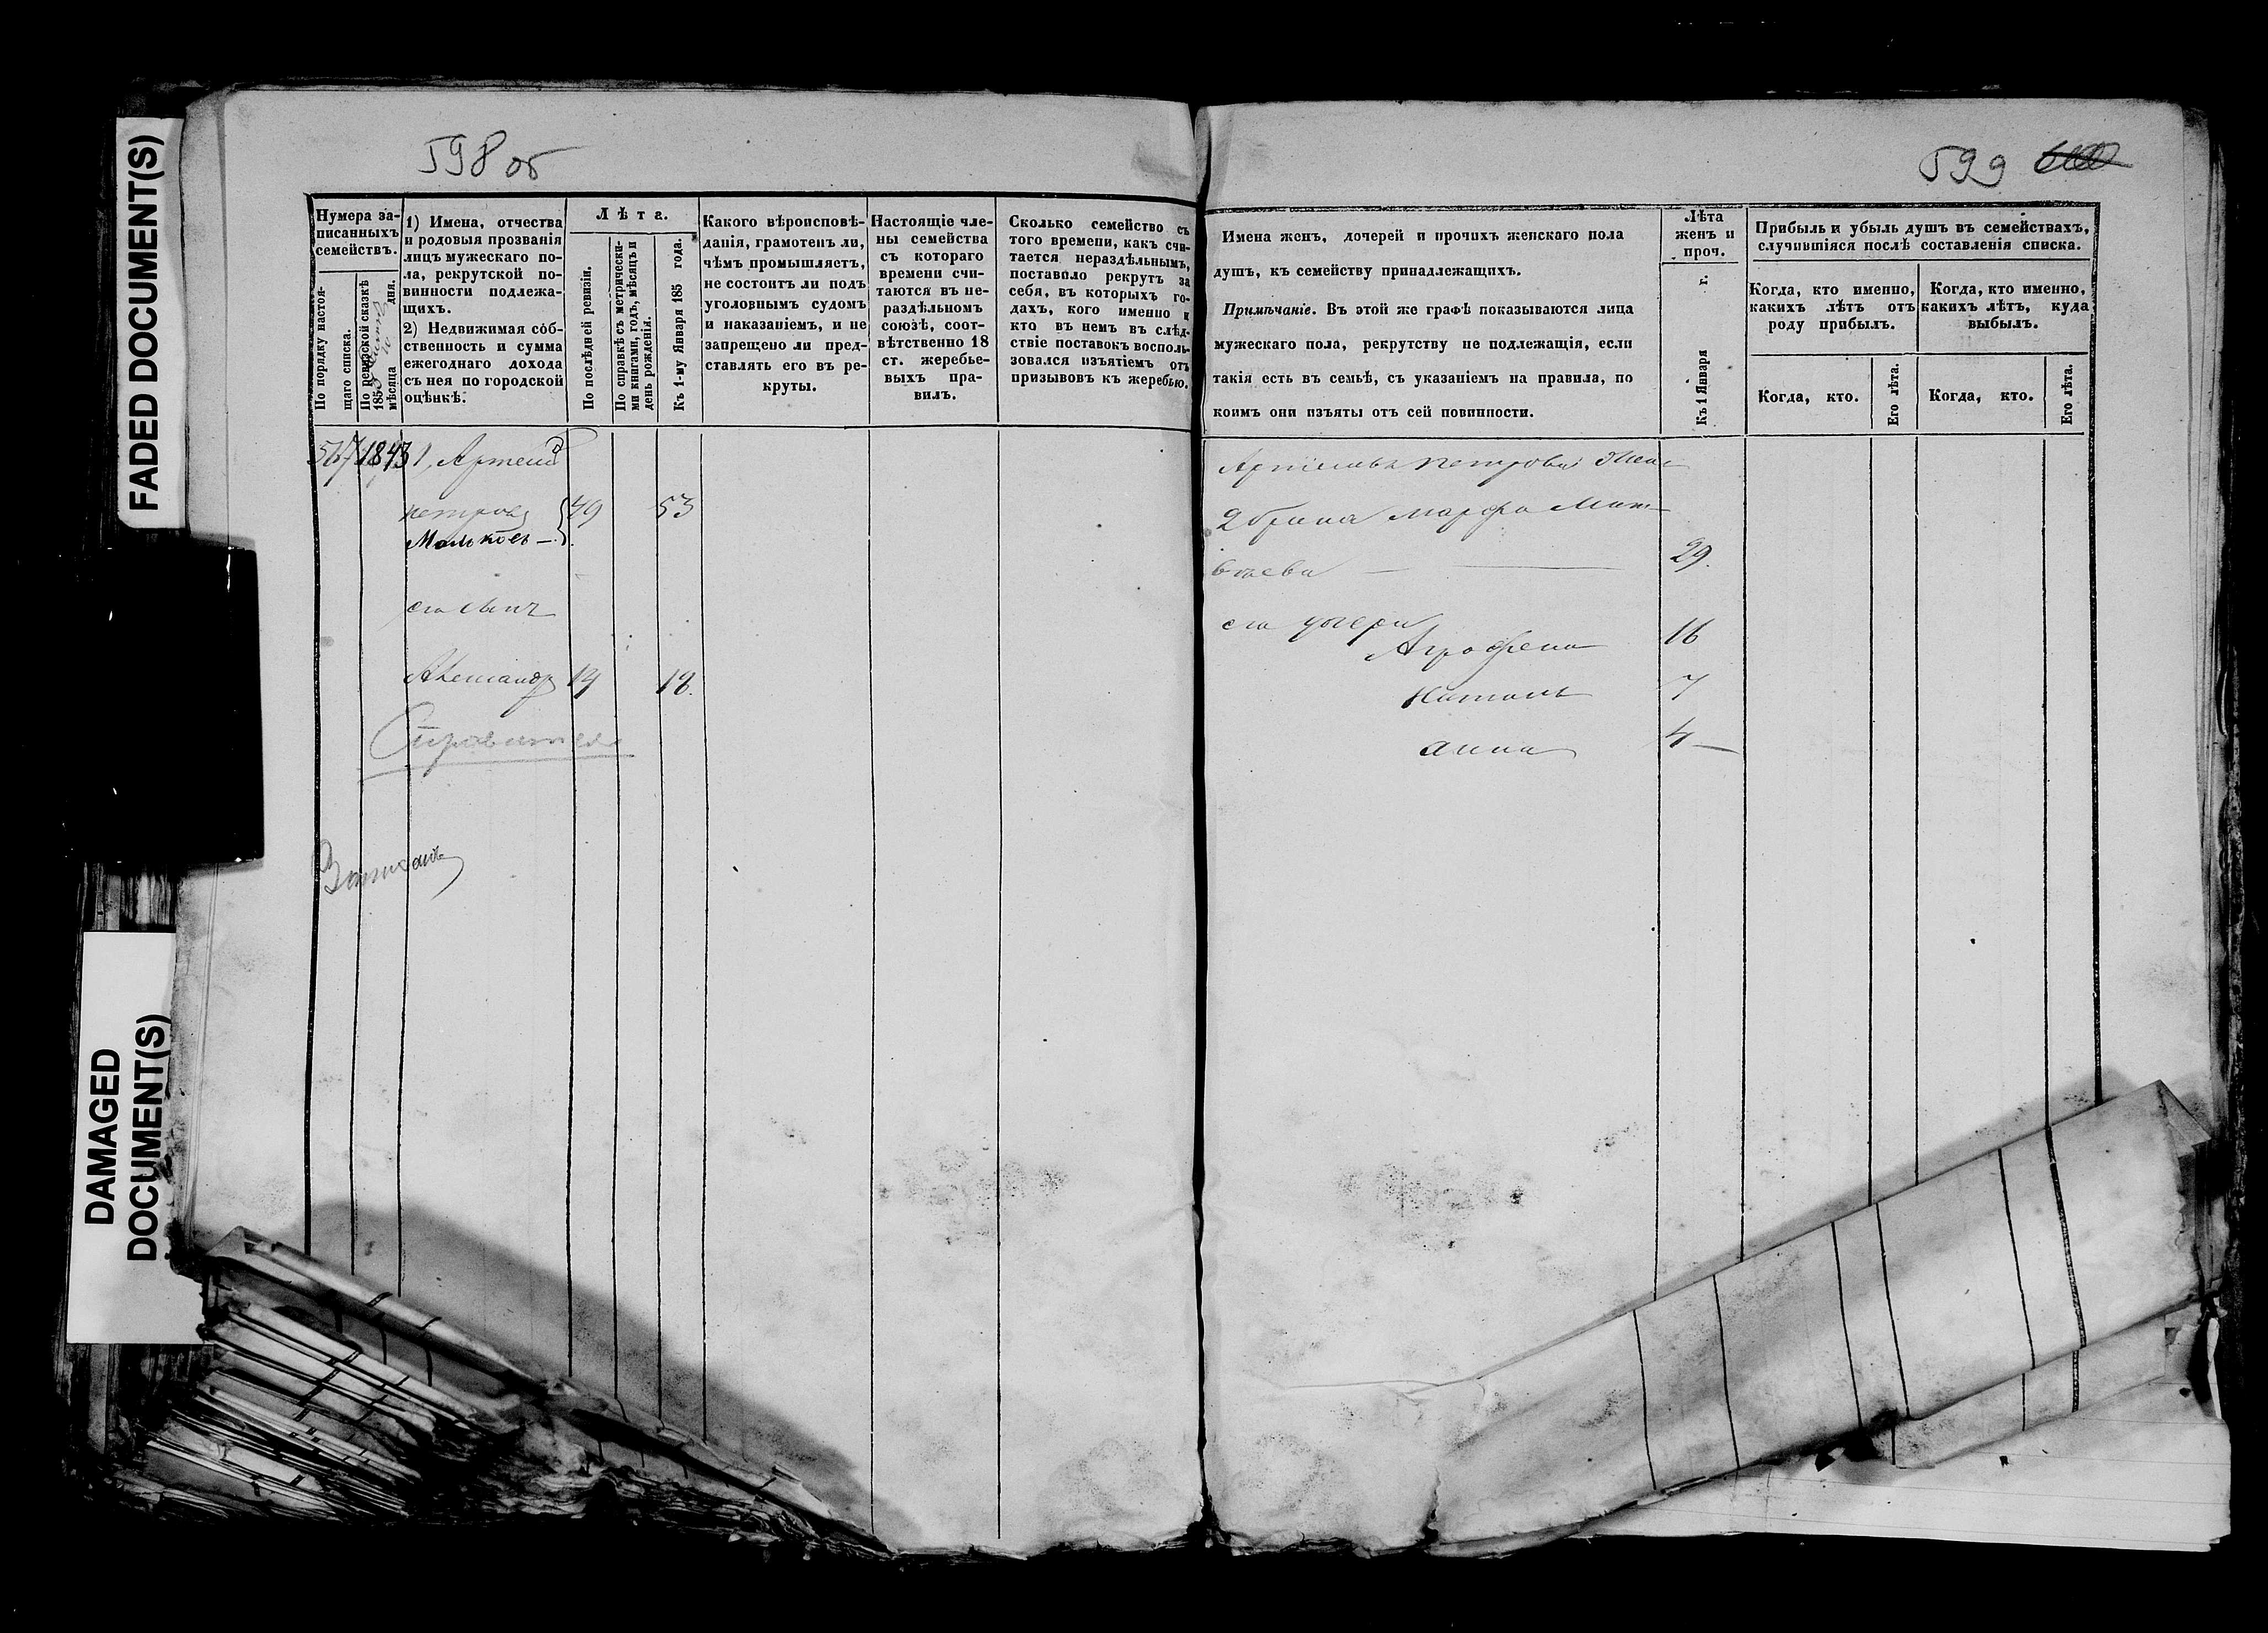 FADED DOCUMENT(S)
DAMAGED
DOCUMENT(S)
598 об
Нумера за-
писанныхъ
семействъ.
По порядку настоя-
щаго списка.
По ревизской сказкѣ
185
мѣсяца дня.
1) Имена, отчества
и родовыя прозванія
лицъ мужескаго по-
ла, рекрутской по-
винности подлежа-
щихъ.
2) Недвижимая соб-
ственность и сумма
ежегоднаго дохода
съ нея по городской
оцѣнкѣ.
Лѣта.
По послѣдней ревизіи.
По справкѣ съ метрически-
ми книгами, годъ, мѣсяцъ и
день рожденія.
Къ 1-му Января 185 года.
Какого вѣроисповѣ-
данія, грамотенъ ли,
чѣмъ промышляетъ,
не состоитъ ли подъ
уголовнымъ судомъ
и наказаніемъ, и не
запрещено ли пред-
ставлять его въ ре-
круты.
Настоящіе чле-
ны семейства
съ котораго
времени счи-
таются въ не-
раздѣльномъ
союзѣ, соот-
вѣтственно 18
ст. жеребье-
выхъ пра-
вилъ.
Сколько семейство съ
того времени, какъ счи-
тается нераздѣльнымъ,
поставило рекрутъ за
себя, въ которыхъ го-
дахъ, кого именно и
кто въ немъ въ слѣд-
ствіе поставокъ восполь-
зовался изъятіемъ отъ
призывовъ къ жеребью.
567 1843 1, Артемій
петровъ 49 53
Мальковъ —
его сынъ
Александръ 14 18.
Записанъ
599
Имена женъ, дочерей и прочихъ женскаго пола
душъ, къ семейству принадлежащихъ.
Примѣчаніе. Въ этой же графѣ показываются лица
мужескаго пола, рекрутству не подлежащія, если
такія есть въ семьѣ, съ указаніемъ на правила, по
коимъ они изъяты отъ сей повинности.
Лѣта
женъ и
проч.
Къ 1 Января г.
Прибыль и убыль душъ въ семействахъ,
случившіяся послѣ составленія списка.
Когда, кто именно,
какихъ лѣтъ отъ
роду прибылъ.
Когда, кто.
Его лѣта.
Когда, кто именно,
какихъ лѣтъ, куда
выбылъ.
Когда, кто.
Его лѣта.
Артемья петрова жена
2 брака Марфа Мат-
вѣева — 29.
его дочери
Аграфена 16
Наталья 7
Анна 4 —